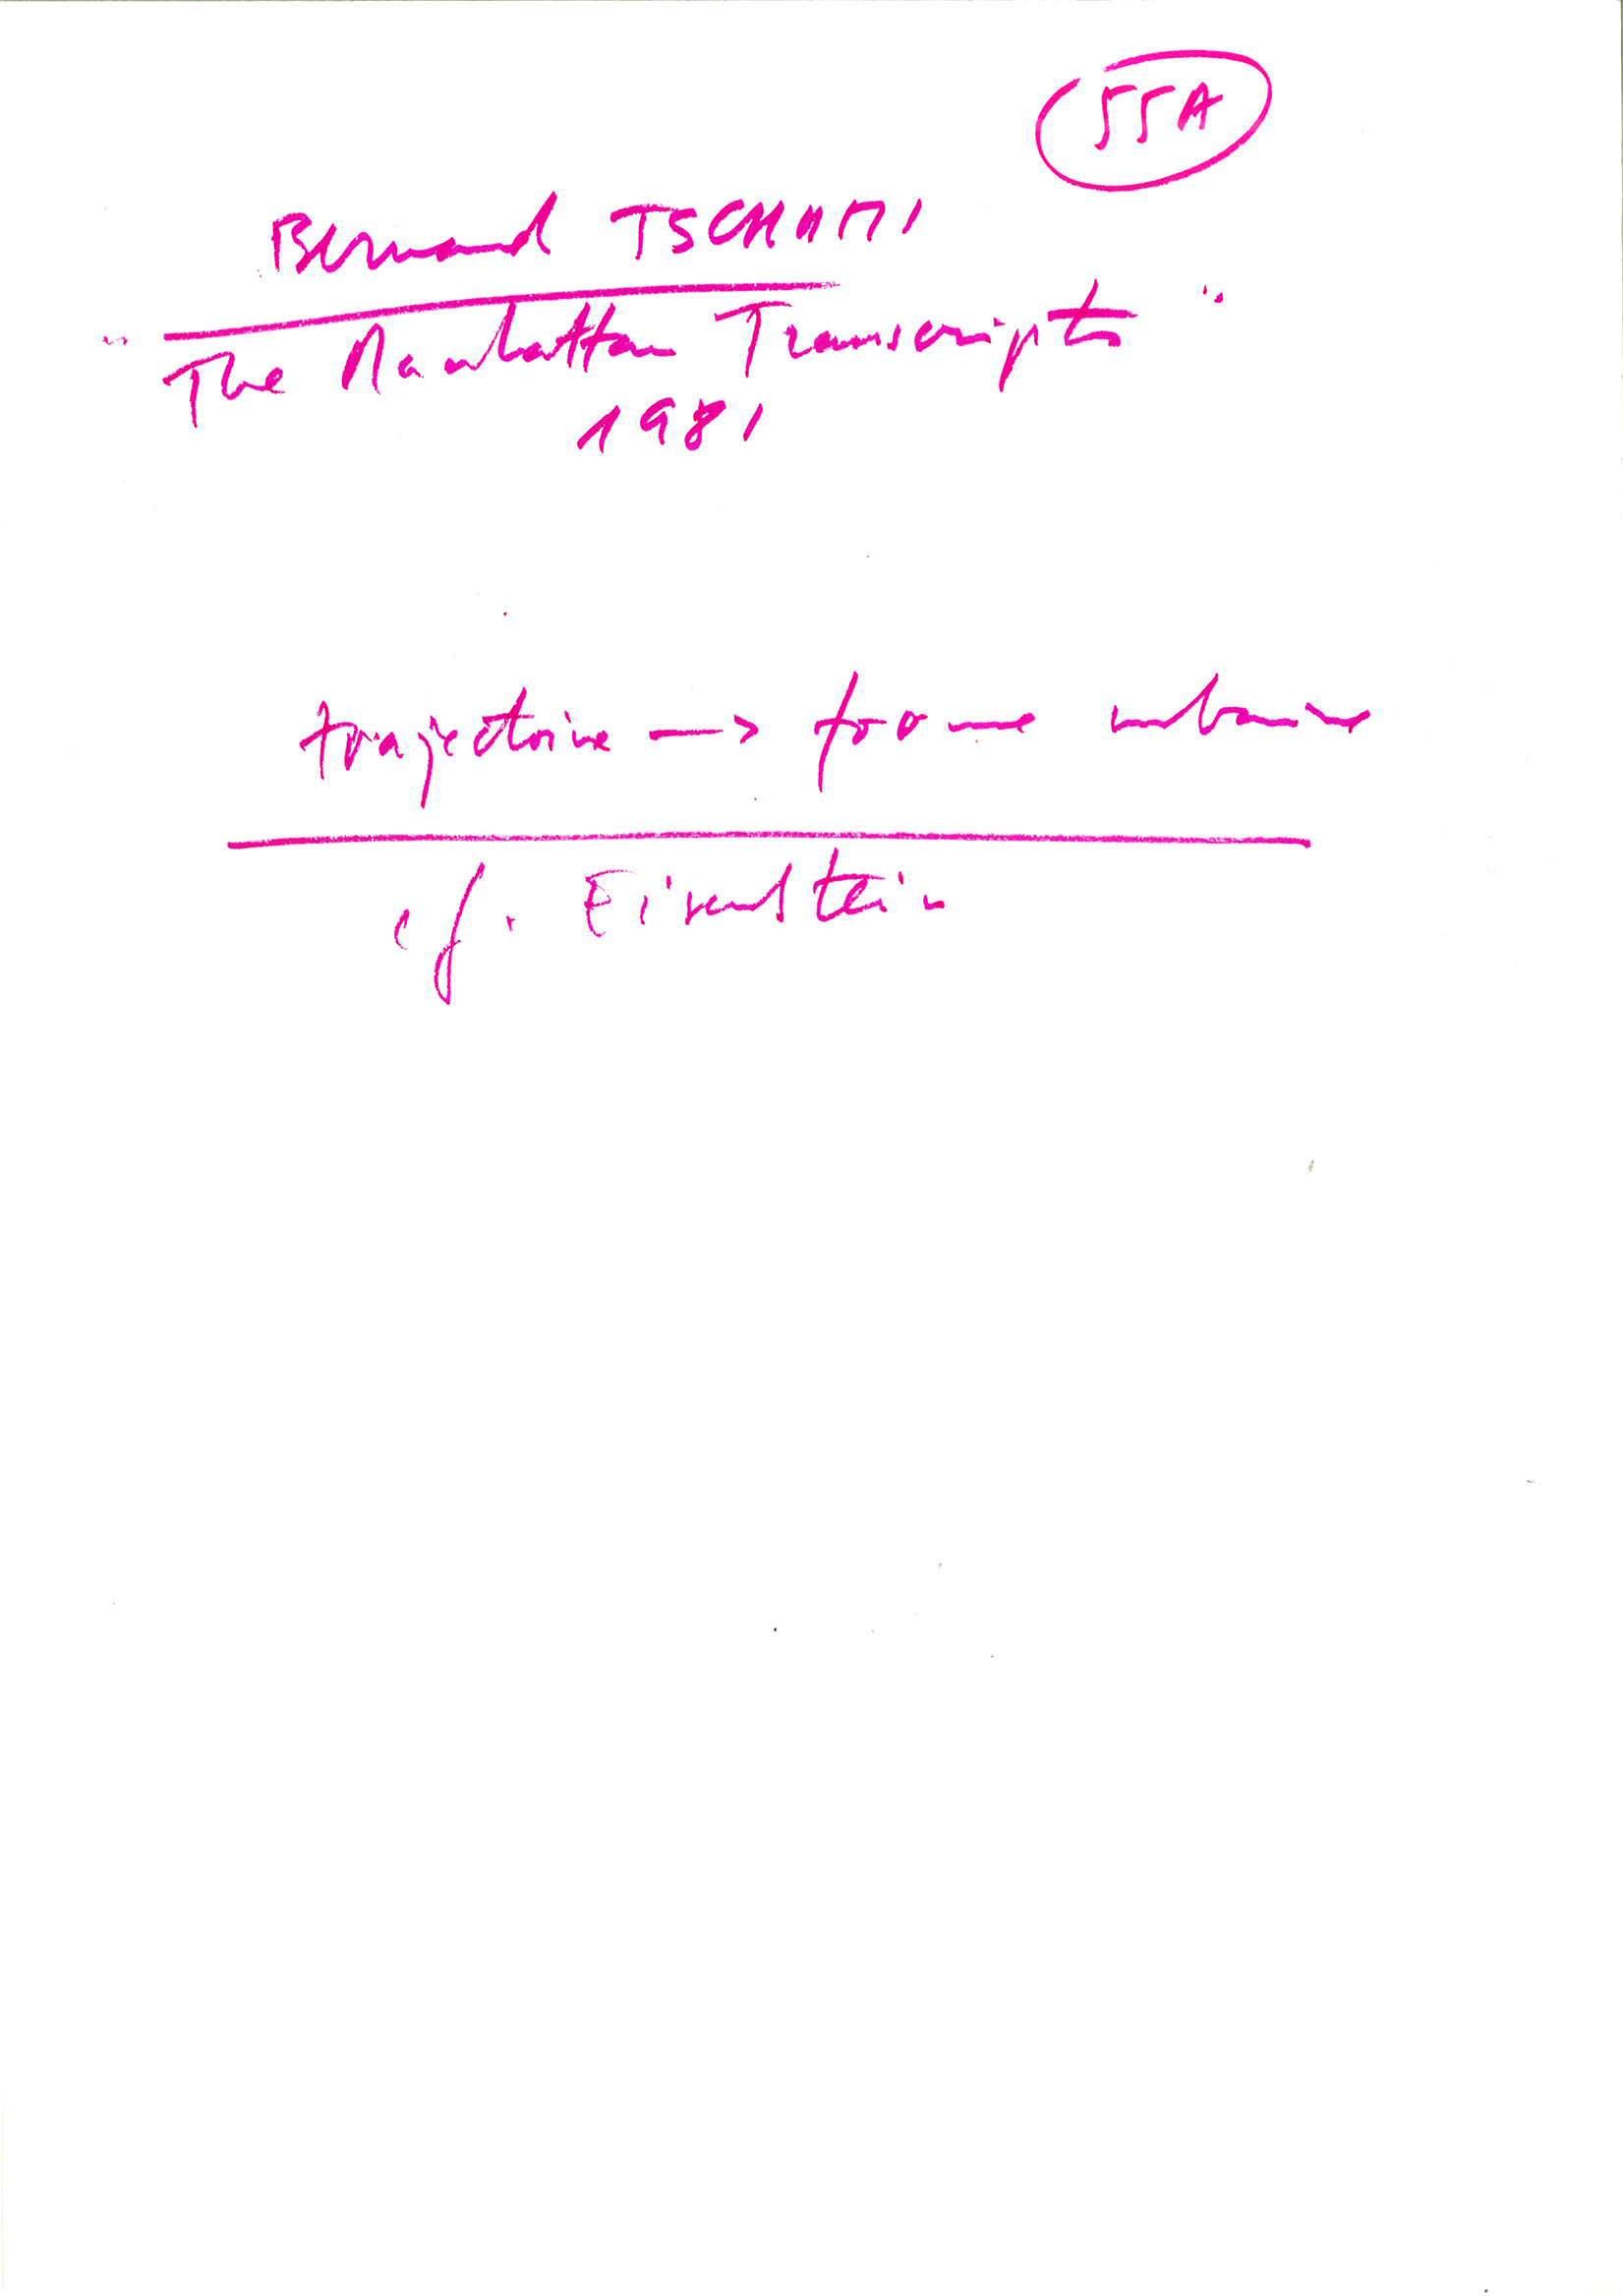 55A
Bernard TSCHUMI
"The Manhattan Transcripts"
1981
trajectoire → trame urbaine
cf. Eisenstein